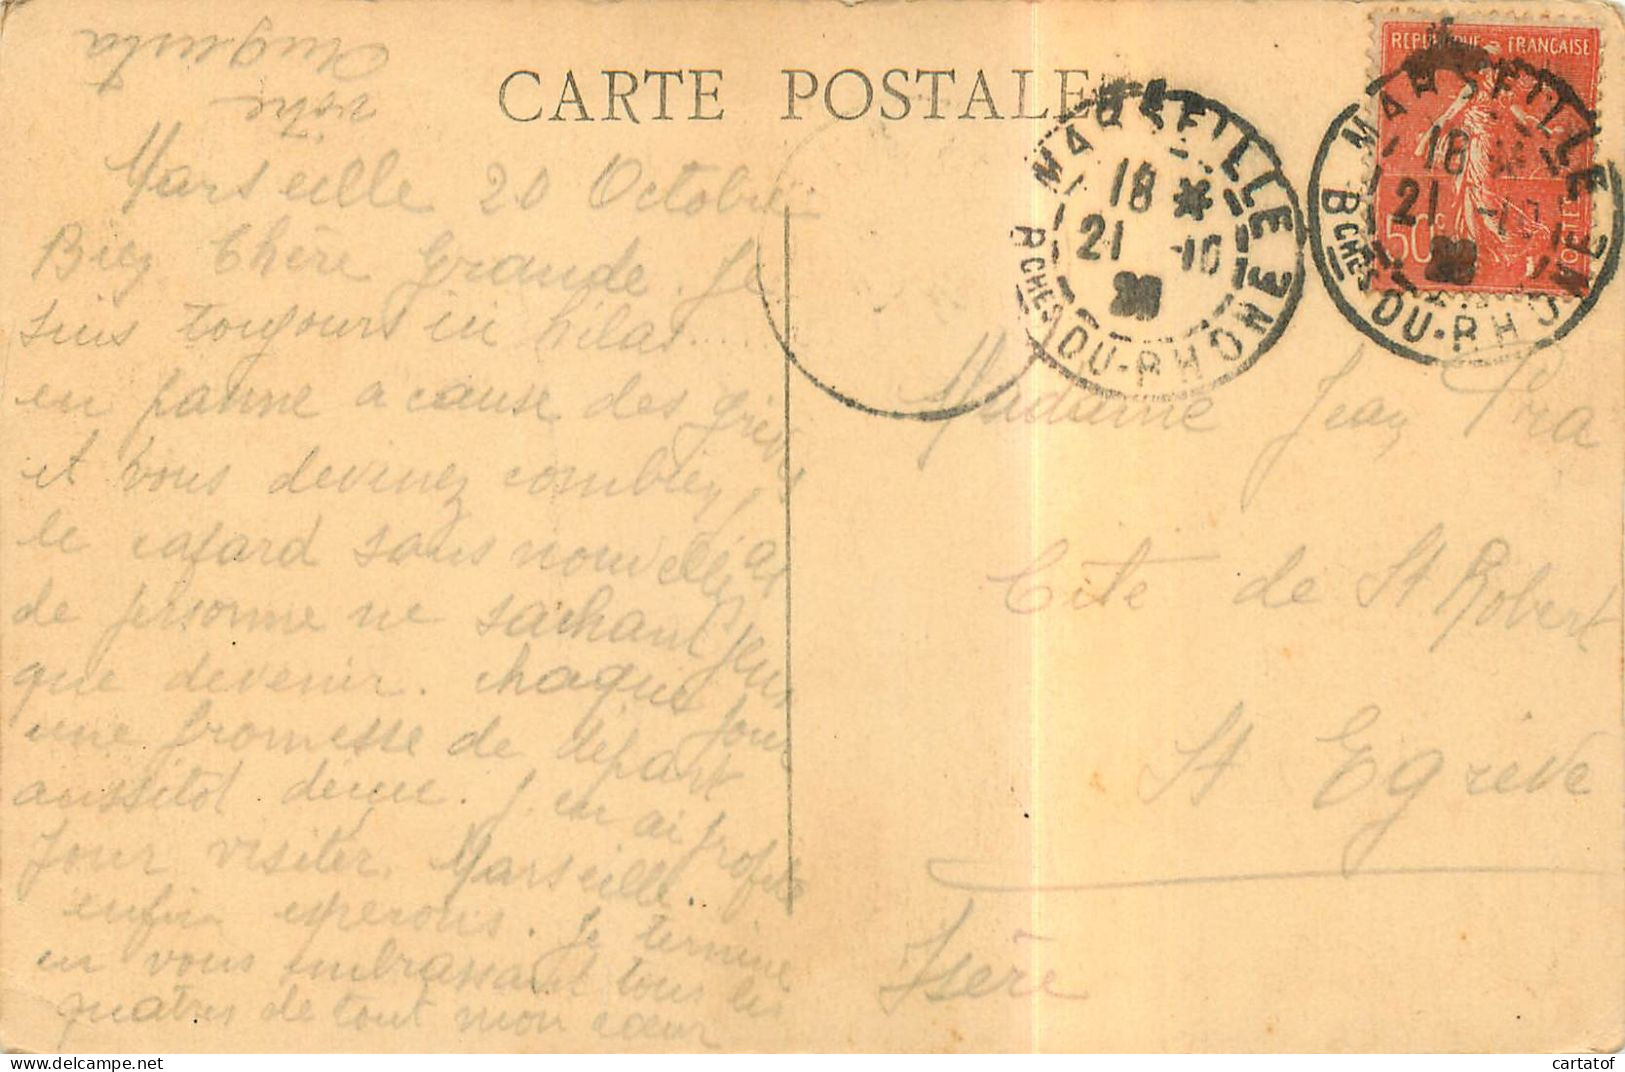 CARTE POSTALE
Marseille 20 Octobre
Bien Chère Grande. Je
suis toujours ici hélas.....
en panne a cause des grèves
et vous devinez combien j'ai
le cafard sans nouvelles
de personne ne sachant
que devenir. chaque jour
une promesse de départ
aussitot déçue. J'en ai profité
pour visiter Marseille.
enfin esperons. Je termine
en vous embrassant tous les
quatres de tout mon cœur
votre
Augusta
REPUBLIQUE FRANÇAISE
50c
POSTES
MARSEILLE
18 *
21 -10
BCHES DU-RHONE
MARSEILLE
18 *
21 -10
BCHES DU-RHONE
Madame Jean Pra
Cite de St Robert
St Egrève
Isère
cartatof